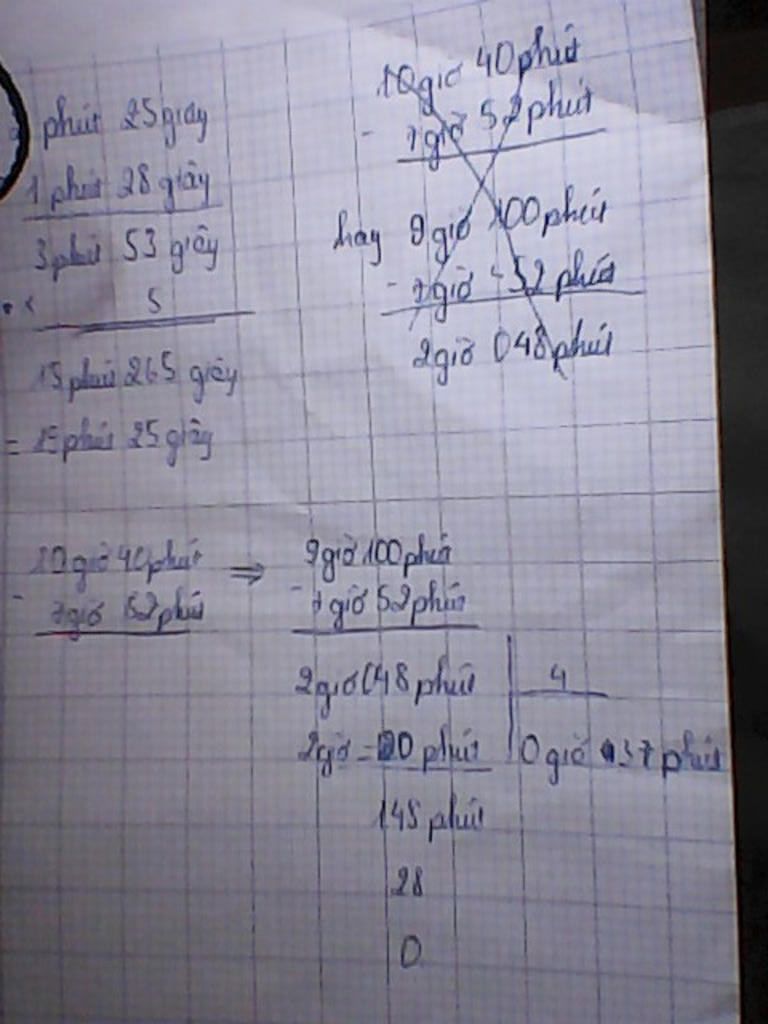 phút 25 giây
1 phút 28 giây
3 phút 53 giây
x 5
15 phút 265 giây
= 15 phút 25 giây
10 giờ 40 phút
- 7 giờ 52 phút
hay 9 giờ 100 phút
- 7 giờ 52 phút
2 giờ 048 phút
10 giờ 40 phút ⇒ 9 giờ 100 phút
- 7 giờ 52 phút - 7 giờ 52 phút
2 giờ 048 phút 4
2 giờ = phút 0 giờ 37 phút
148 phút
28
0